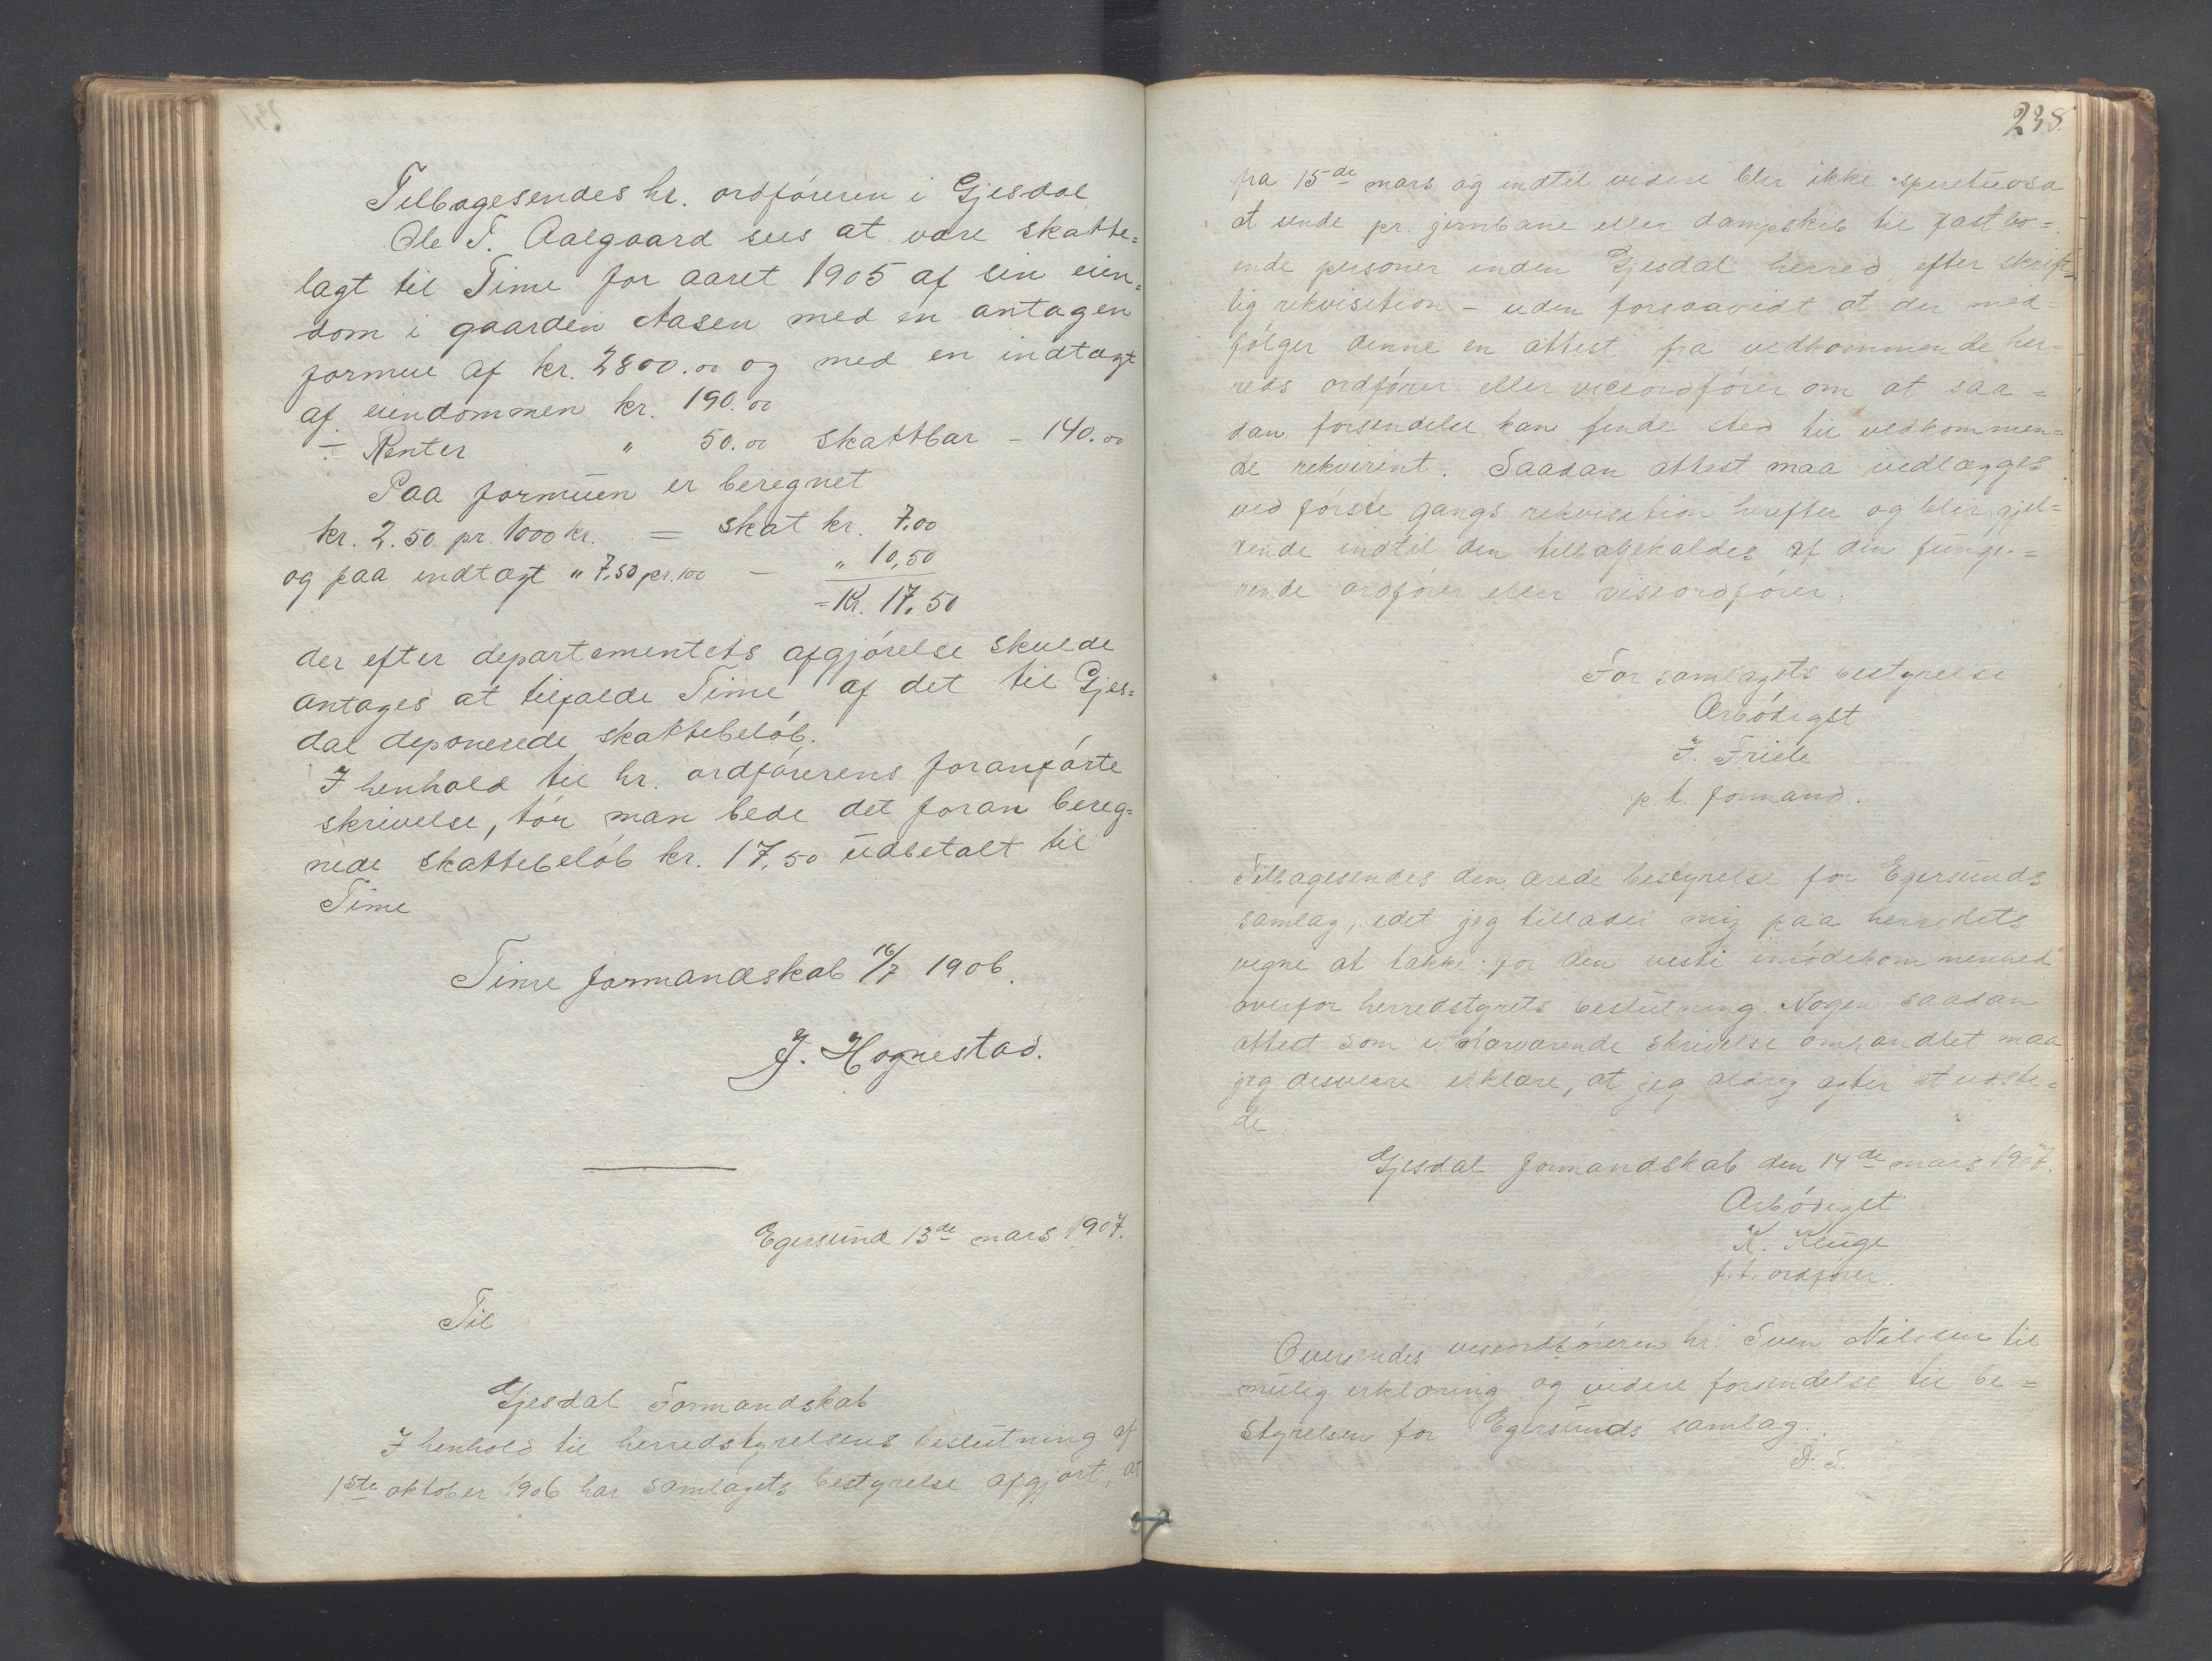 Tilbagesendes hr. ordføreren i Gjesdal
Ole T. Aalgaard sees at være skatte=
lagt til Time for aaret 1905 af sin eien=
dom i gaarden Aasen med en antagen
formue af kr. 2800.00 og med en indtægt
af eiendommen kr. 190.00
÷ Renter " 50.00 skattbar - 140.00
Paa formuen er beregnet
kr. 2.50 pr. 1000 kr. = skat kr. 7.00
og paa indtægt " 7,50 pr. 100 — " 10,50
= Kr. 17,50
der efter departementets afgjørelse skulde
antages at tilfalde Time af det til Gjes=
dal deponerede skattebeløb.
I henhold til hr. ordførerens foranførte
skrivelse, tør man bede det foran bereg=
nede skattebeløb kr. 17,50 udbetalt til
Time
Time formandskab 16/7 1906.
J. Hognestad.
Egersund 13de mars 1907.
Til
Gjesdal Formandskab
I henhold til herredstyrelsens beslutning af
1ste oktober 1906 har samlagets bestyrelse afgjort, at
238.
fra 15de mars og indtil videre blir ikke spirituosa
at sende pr. jernbane eller dampskib til fastbo=
ende personer inden Gjesdal herred efter skrift=
lig rekvisition - uden forsaavidt at der med
følger denne en attest fra vedkommende her=
reds ordfører eller viceordfører om at saa=
dan forsendelse kan finde sted til vedkommen=
de rekvirent. Saadan attest maa vedlægges
ved første gangs rekvisition herefter og blir gjel=
dende indtil den tilbagekaldes af den funge=
rende ordfører eller viseordfører.
For samlagets bestyrelse
Ærbødigst
J. Friele
p. t. formand.
Tilbagesendes den ærede bestyrelse for Egersunds
samlag, idet jeg tillader mig paa herredets
vegne at takke for den viste imødekommenhed
overfor herredstyrets beslutning. Nogen saadan
attest som i nærværende skrivelse omhandlet maa
jeg desværre erklære, at jeg aldrig agter at udste=
de.
Gjesdal formandskab den 14de mars 1907.
Ærbødigst
K. Kluge
f. t. ordfører.
Oversendes viseordføreren hr. Sven Nilssen til
mulig erklæring og videre forsendelse til be=
styrelsen for Egersunds samlag.
D. S.